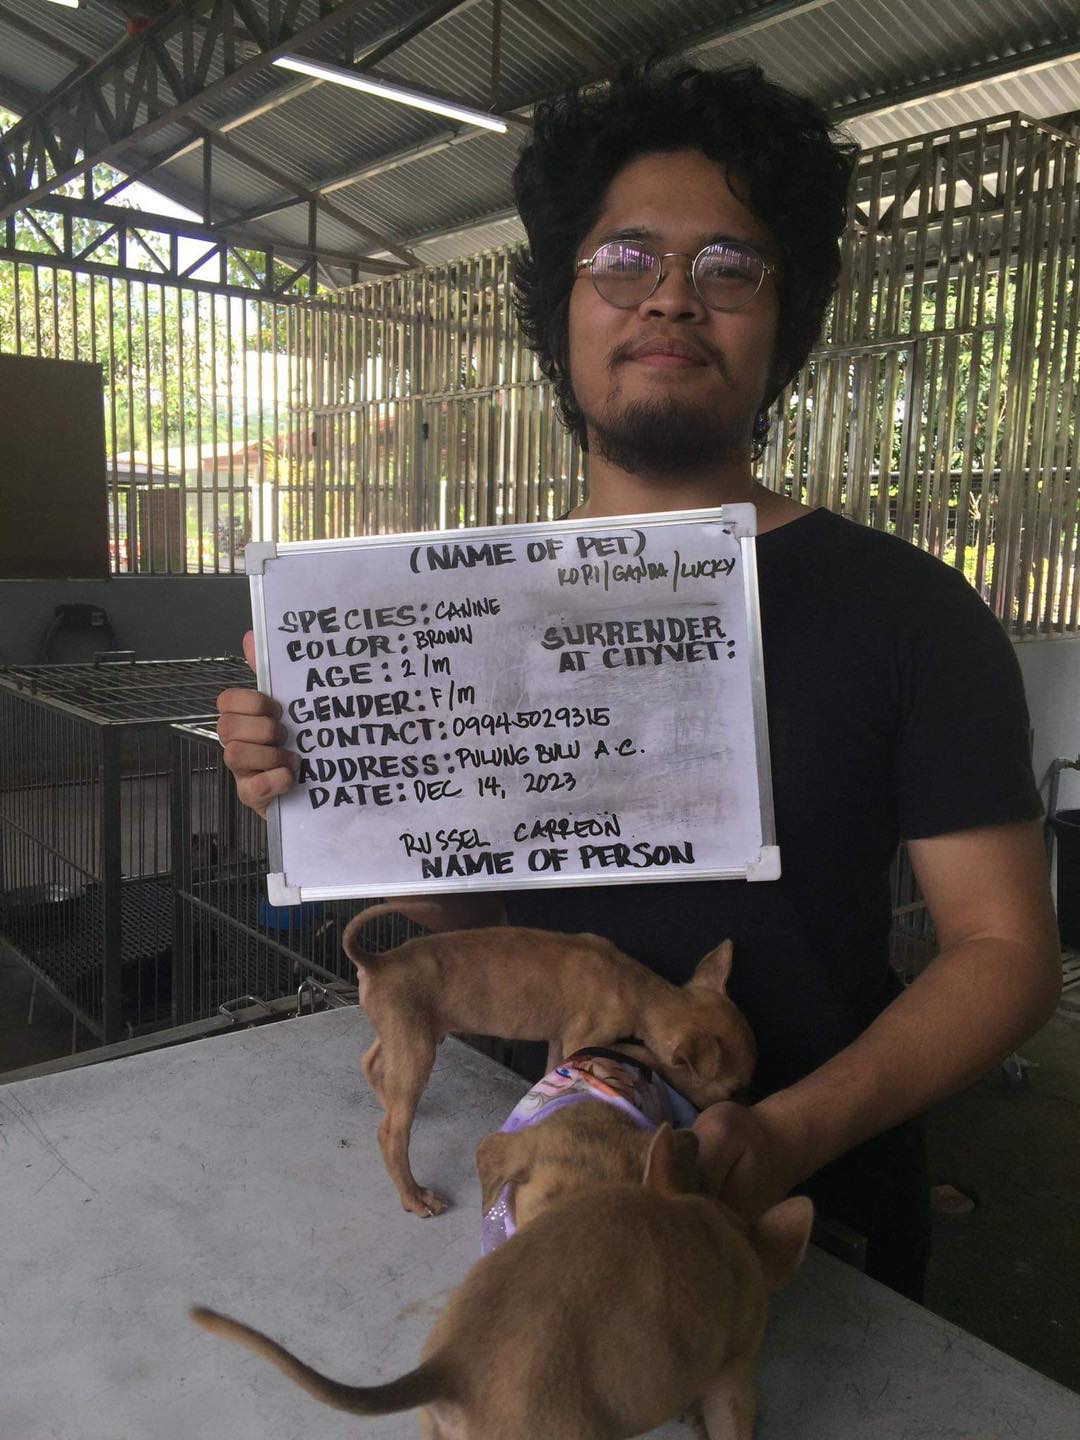 (NAME OF PET)
KORI/GANDA/LUCKY
SPECIES: CANINE
COLOR: BROWN
AGE: 2/m
GENDER: F/m
CONTACT: 09945029315
ADDRESS: PULUNG BULU A.C.
DATE: DEC 14, 2023
SURRENDER
AT CITYVET:
RUSSEL CARREON
NAME OF PERSON